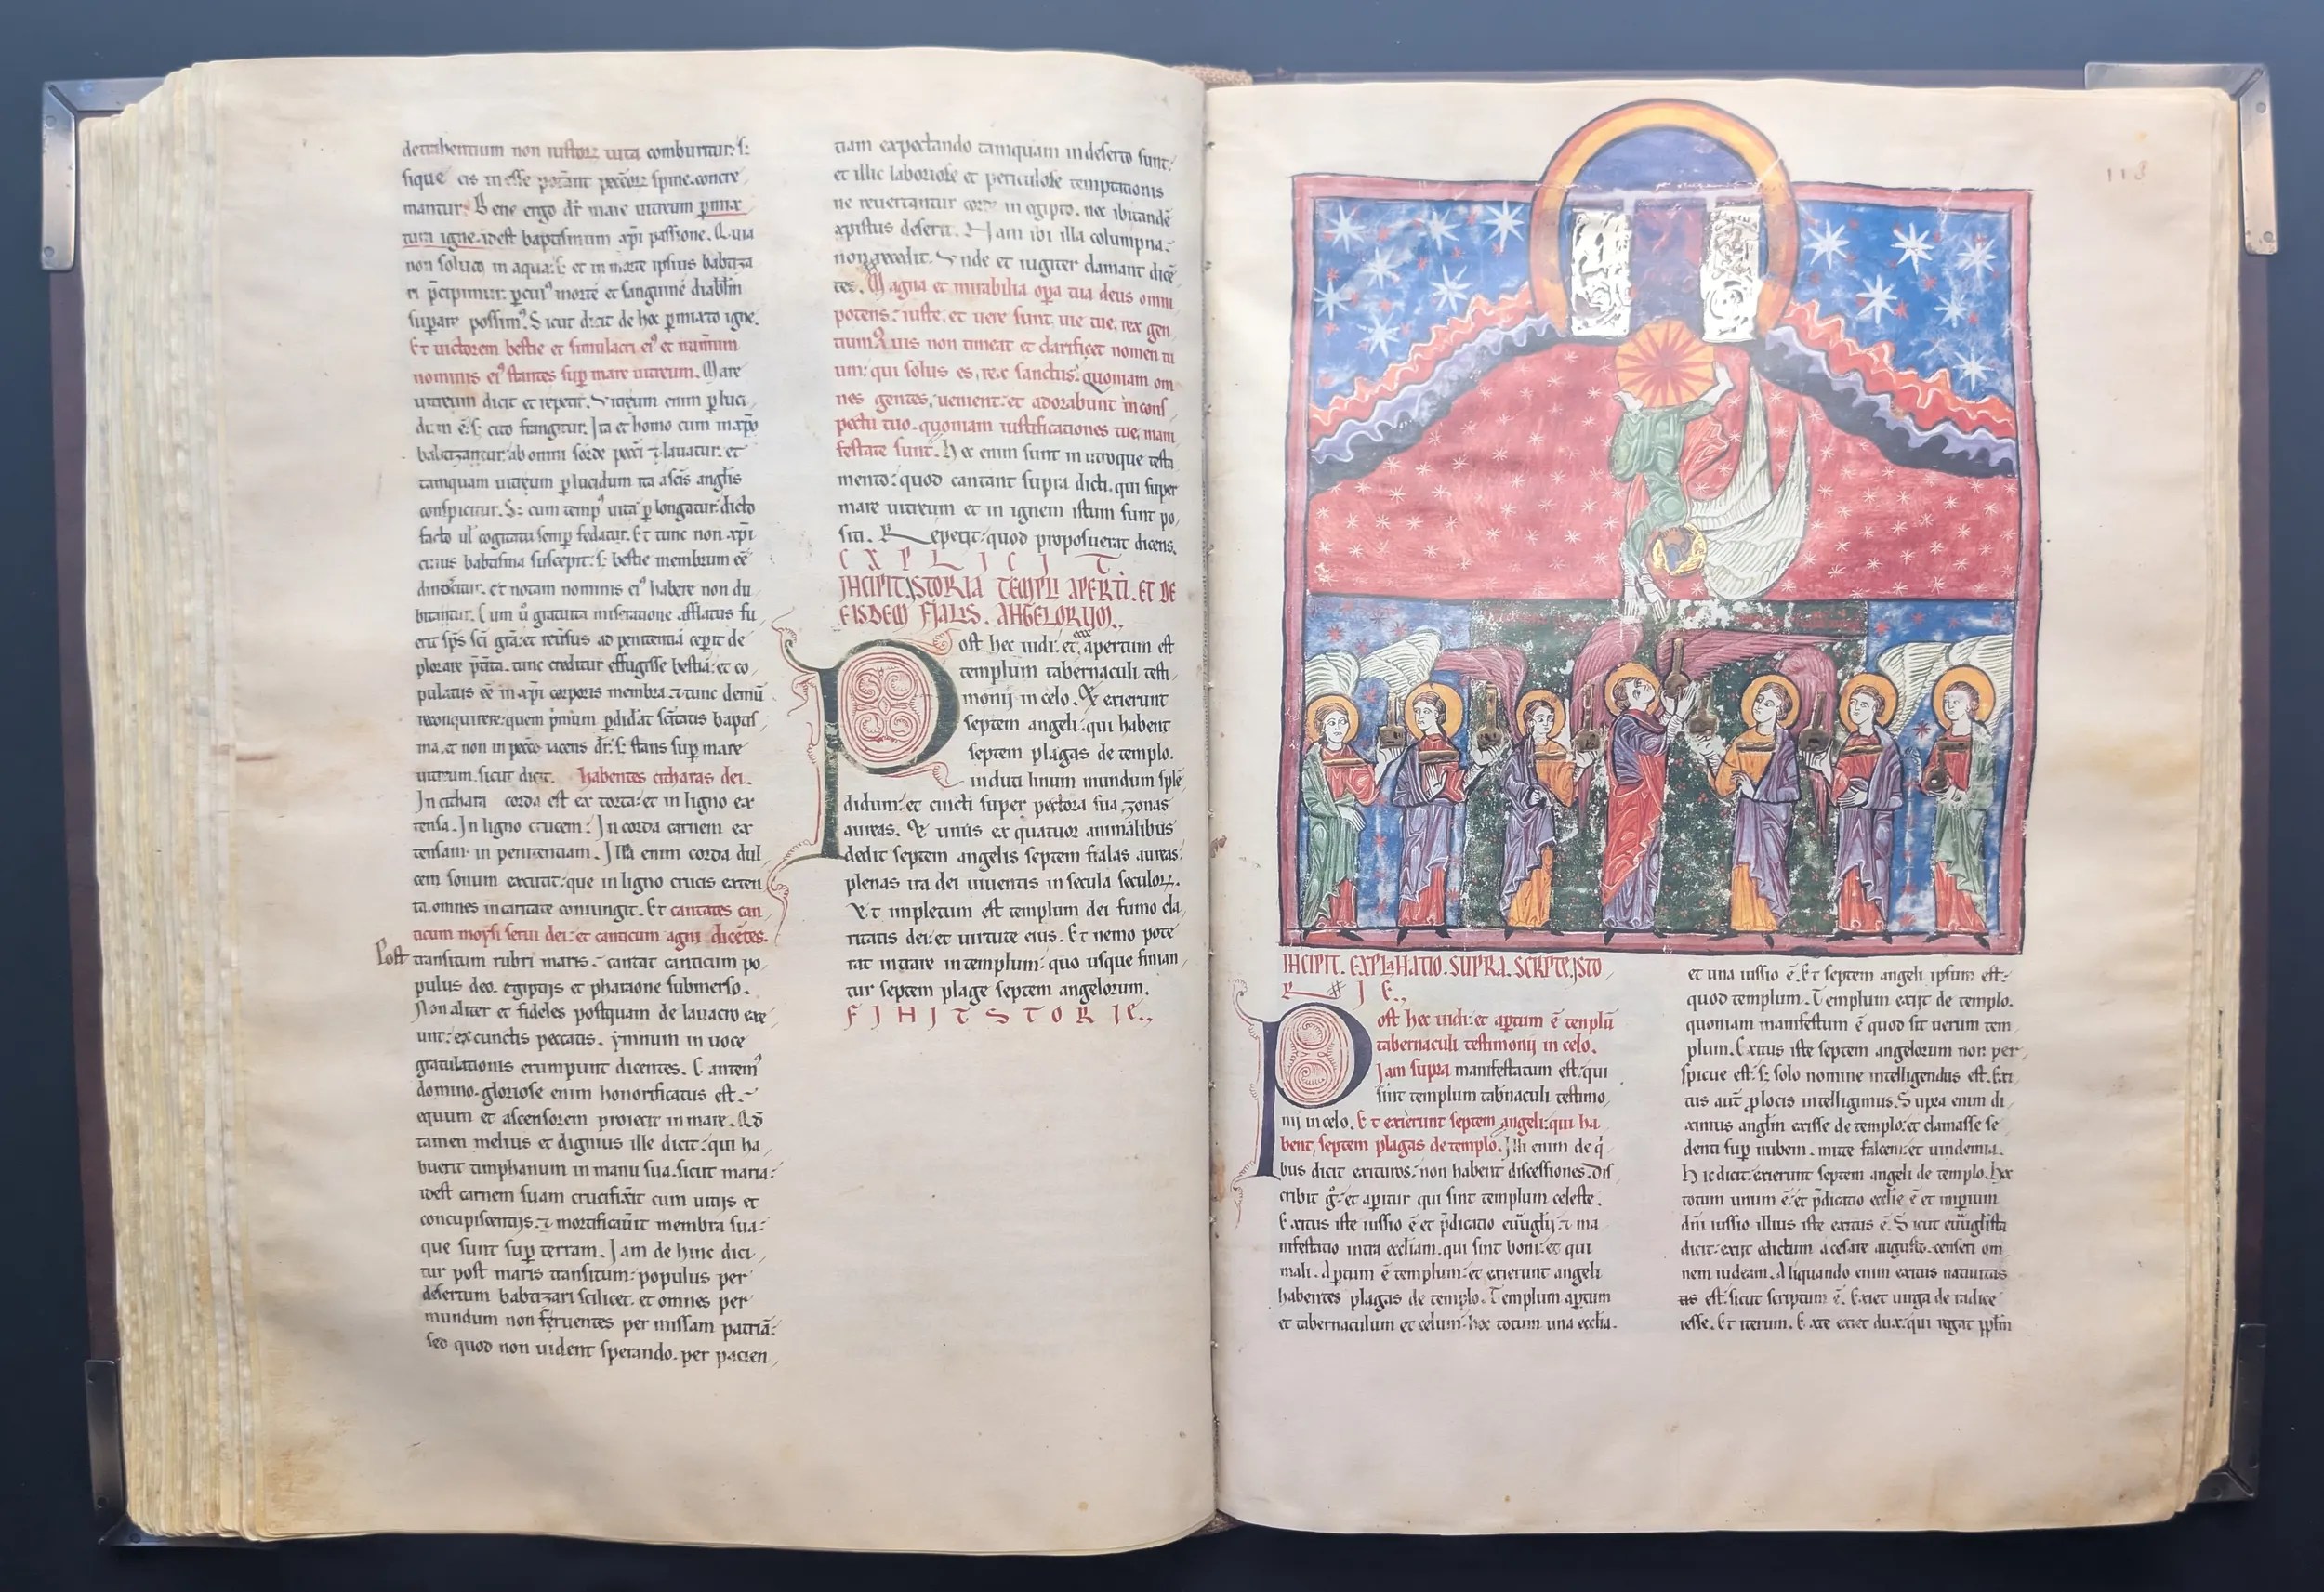 detrahentium non iustoꝝ uita comburitur: s:
sique eis inesse potant̄ peccoꝝ spine concre
mantur. Bene ergo dr̄ mare uitreum ꝑmix
tum igne. idest baptismum xp̄i passione. Quia
non solum in aqua: s: et in morte ipsius babtiza
ri p̄cipimur: ꝑ cuiꝰ morte et sanguine diablm̄
suꝑare possimꝰ. Sicut dicit de hoc ꝑmixto igne.
Et uictorem bestie et simulacri eiꝰ et numm̄
nominis eiꝰ stantes suꝑ mare uitreum. Mare
uitreum dicit et repetit. Vitreum enim ꝑluci
dum ē. s: cito frangitur. Ita et homo cum in xp̄o
babtizantur: ab omni sorde pecci ⁊ lauatur. et
tamquam uitreum ꝑlucidum ita a scīs anglis
conspicitur. S: cum tempꝰ uita ꝑlongatur: dicto
facto ul̄ cogitatu semꝑ fedatur. Et tunc non xp̄i
cuius babtisma suscepit: s: bestie membrum eē
dinoscitur. et notam nominis eiꝰ habere non du
bitantur. Cum ū gratuita miseratione afflatus fu
erit sp̄s sc̄i grā: et reūsus ad penitentiā ceperit de
plorare p̄cita. tunc creditur effugisse bestiā: et co
pulatus eē in xp̄i corporis membra. ⁊ tunc demū
reconquirere: quem p̄mum ꝑdidat sc̄itatis baptis
ma. et non in pecco iacens dr̄: s: stans suꝑ mare
uitreum. sicut dicit. habentes citharas dei.
In cithara corda est ex torta: et in ligno ex
tensa. In ligno crucem: In corda carnem ex
tensam in penitentiam. Illa enim corda dul
cem sonum excutit: que in ligno crucis exten
ta. omnes in caritate coniungit. Et cantates can
ticum moysi serui dei: et canticum agni dicētes.
Post transitum rubri maris. cantat canticum po
pulus deo. egiptijs et pharaone submerso.
Non aliter et fideles postquam de lauacro exe
unt: ex cunctis peccatis. ymnum in uoce
gratulationis erumpunt dicentes. Cantemꝰ
domino. gloriose enim honorificatus est.
equum et ascensorem proiecit in mare. Qd̄
tamen melius et dignius ille dicit: qui ha
buerit timphanum in manu sua. sicut maria:
idest carnem suam crucifixit cum uitijs et
concupiscentijs. ⁊ mortificauit membra sua:
que sunt suꝑ terram. Iam de hinc dici
tur post maris transitum: populus per
desertum babtizari scilicet. et omnes per
mundum non feruentes per missam patriā:
sed quod non uident sperando. per pacien
tiam expectando tamquam in deserto sunt:
et illic laboriose et periculose temptationis
ne reuertantur corde in egipto. nec ibi tandē
xpistus deserit. Nam ibi illa columpna
non recedit. Vnde et iugiter clamant dicē
tes. Magna et mirabilia oꝑa tua deus omni
potens: iuste, et uere sunt, uie tue, rex gen
tium. Quis non timeat et clarificet nomen tu
um: qui solus es, rex sanctus: quoniam om
nes gentes, uenient: et adorabunt in cons
pectu tuo. quoniam iustificationes tue, mani
festate sunt. Hec enim sunt in utroque testa
mento: quod cantant supra dicti. qui super
mare uitreum et in ignem istum sunt po
siti. Repetit: quod proposuerat dicens.
EXPLICIT
INCIPIT ISTORIA TEMPLI APERTI. ET DE
EISDEM FIALIS. ANGELORUM.
Post hec uidi. et apertum est
templum tabernaculi testi
monij in celo. Et exierunt
septem angeli: qui habent
septem plagas de templo.
induti linum mundum splē
didum: et cincti super pectora sua zonas
aureas. Et unus ex quatuor animalibus
dedit septem angelis septem fialas aureas:
plenas ira dei uiuentis in secula seculoꝝ.
Et impletum est templum dei fumo cla
ritatis dei: et uirtute eius. Et nemo pote
rat intrare in templum: quo usque finian
tur septem plage septem angelorum.
FINIT STORIE.
113
INCIPIT. EXPLANATIO. SUPRA. SCRIPTE. ISTO
RIE.
Post hec uidi: et aꝑtum ē templū
tabernaculi testimonij in celo.
Iam supra manifestatum est: qui
sint templum tabnaculi testimo
nij in celo. Et exierunt septem angeli: qui ha
bent, septem plagas de templo. Illi enim de q
bus dicit exituros: non habent discessiones. Dis
cribit g: et aperitur qui sint templum celeste.
Exitus iste iussio ē et p̄dicatio euuglij: ⁊ ma
nifestatio intra eccliam. qui sint boni: et qui
mali. Aꝑtum ē templum: et exierunt angeli
habentes plagas de templo. Templum aꝑtum
et tabernaculum et celum: hoc totum una ecclia.
et una iussio ē. Et septem angeli ipsum est:
quod templum. Templum exijt de templo.
quoniam manifestum ē quod sit uerum tem
plum. Exitus iste septem angelorum non per
spicue est: s: solo nomine intelligendus est. Exi
tus aut̄ ꝓ locis intelligimus. Supra enim di
ximus anglm̄ exisse de templo: et clamasse se
denti suꝑ nubem. mitte falcem: et uindemia.
Hic dicit: exierunt septem angeli de templo. hec
totum unum ē: et p̄dicatio ecclie ē et imperium
dn̄i iussio illius iste exitus ē. Sicut euuglista
dicit: exijt edictum a cesare augusto. censeri om
nem iudeam. Aliquando enim exitus natiuitas
est. sicut scriptum ē. Exiet uirga de radice
iesse. Et iterum. Ex te exiet dux: qui regat pplm̄